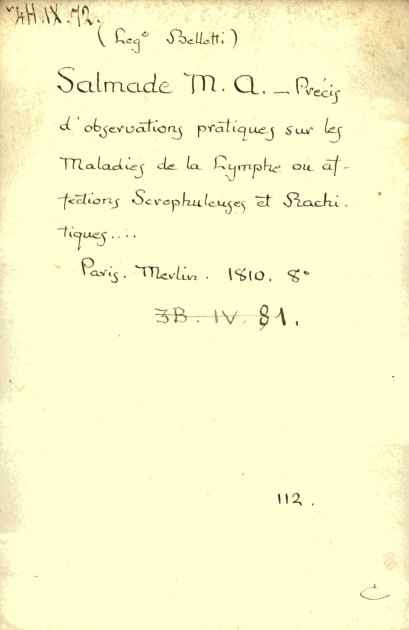 4H.IX.72.
(Leg° Bellotti)
Salmade M. A. — Précis
d'observations pratiques sur les
Maladies de la Lymphe ou af-
fections Scrophuleuses et Rachi-
tiques....
Paris. Merlin. 1810. 8°
3B. IV. 81.
112.
C